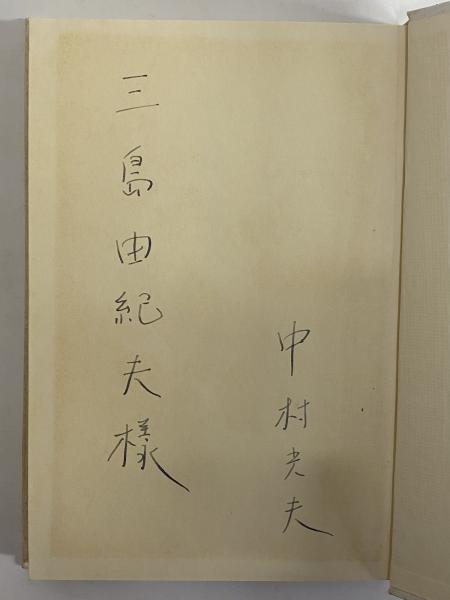 三島由紀夫様
中村光夫